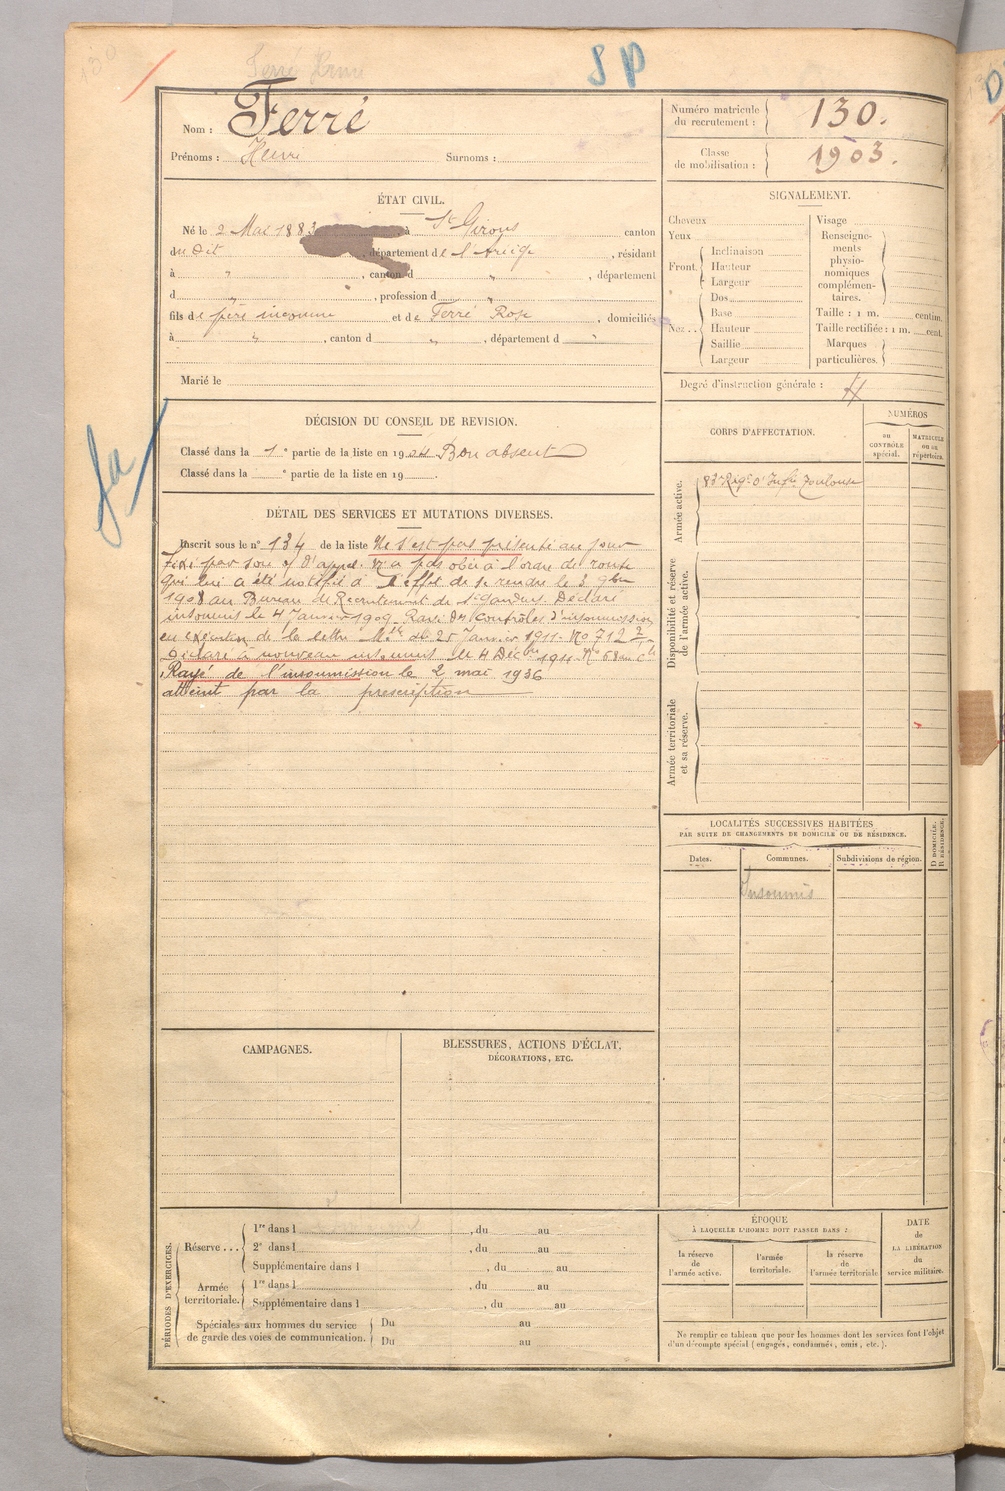 130
Ferré Henri
SP
Nom : Ferré
Prénoms : Henri Surnoms :
Numéro matricule du recrutement : 130.
Classe de mobilisation : 1903.
ÉTAT CIVIL.
Né le 2 Mai 1883 à St Girons canton
du dit, département de l'Ariège, résidant
à " , canton d " , département
d " , profession d "
fils de père inconnu et de Ferré Rose, domiciliés
à " , canton d " , département d "
Marié le
SIGNALEMENT.
Cheveux
Yeux
Front. Inclinaison
Hauteur
Largeur
Nez.. Dos
Base
Hauteur
Saillie
Largeur
Visage
Renseigne-
ments
physio-
nomiques
complémen-
taires.
Taille : 1 m. centim.
Taille rectifiée : 1 m. cent.
Marques
particulières.
Degré d'instruction générale :
DÉCISION DU CONSEIL DE REVISION.
Classé dans la 1e partie de la liste en 1904 Bon absent
Classé dans la e partie de la liste en 19 .
fa
DÉTAIL DES SERVICES ET MUTATIONS DIVERSES.
Inscrit sous le n° 134 de la liste Ne s'est pas présenté au jour
fixé par son d'appel. N'a pas obéi à l'ordre de route
qui lui a été notifié à l'effet de se rendre le 8 9bre
1908 au Bureau de Recrutement de St Gaudens. Déclaré
insoumis le 4 Janvier 1909. Rayé des Contrôles d'insoumission
en exécution de la lettre Mlle de 25 Janvier 1911. No 712
Déclaré à nouveau insoumis le 4 Décbre 1911. No 68 au Cle
Rayé de l'insoumission le 2 mai 1936
atteint par la prescription
CORPS D'AFFECTATION.
NUMÉROS
au
CONTRÔLE
spécial.
MATRICULE
ou au
répertoire.
Armée active.
83e Régt d'Infie Toulouse
Disponibilité et réserve
de l'armée active.
Armée territoriale
et sa réserve.
LOCALITÉS SUCCESSIVES HABITÉES
PAR SUITE DE CHANGEMENTS DE DOMICILE OU DE RÉSIDENCE.
Dates. Communes. Subdivisions de région.
D DOMICILE.
R RÉSIDENCE.
Insoumis
CAMPAGNES.
BLESSURES, ACTIONS D'ÉCLAT,
DÉCORATIONS, ETC.
PÉRIODES D'EXERCICES.
Réserve ... 1re dans l , du au
2e dans l , du au
Supplémentaire dans l , du au
Armée
territoriale. 1re dans l , du au
Supplémentaire dans l , du au
Spéciales aux hommes du service
de garde des voies de communication. Du au
Du au
ÉPOQUE
À LAQUELLE L'HOMME DOIT PASSER DANS :
la réserve
de
l'armée active.
l'armée
territoriale.
la réserve
de
l'armée territoriale
DATE
de
LA LIBÉRATION
du
service militaire.
Ne remplir ce tableau que pour les hommes dont les services font l'objet
d'un décompte spécial (engagés, condamnés, omis, etc.).